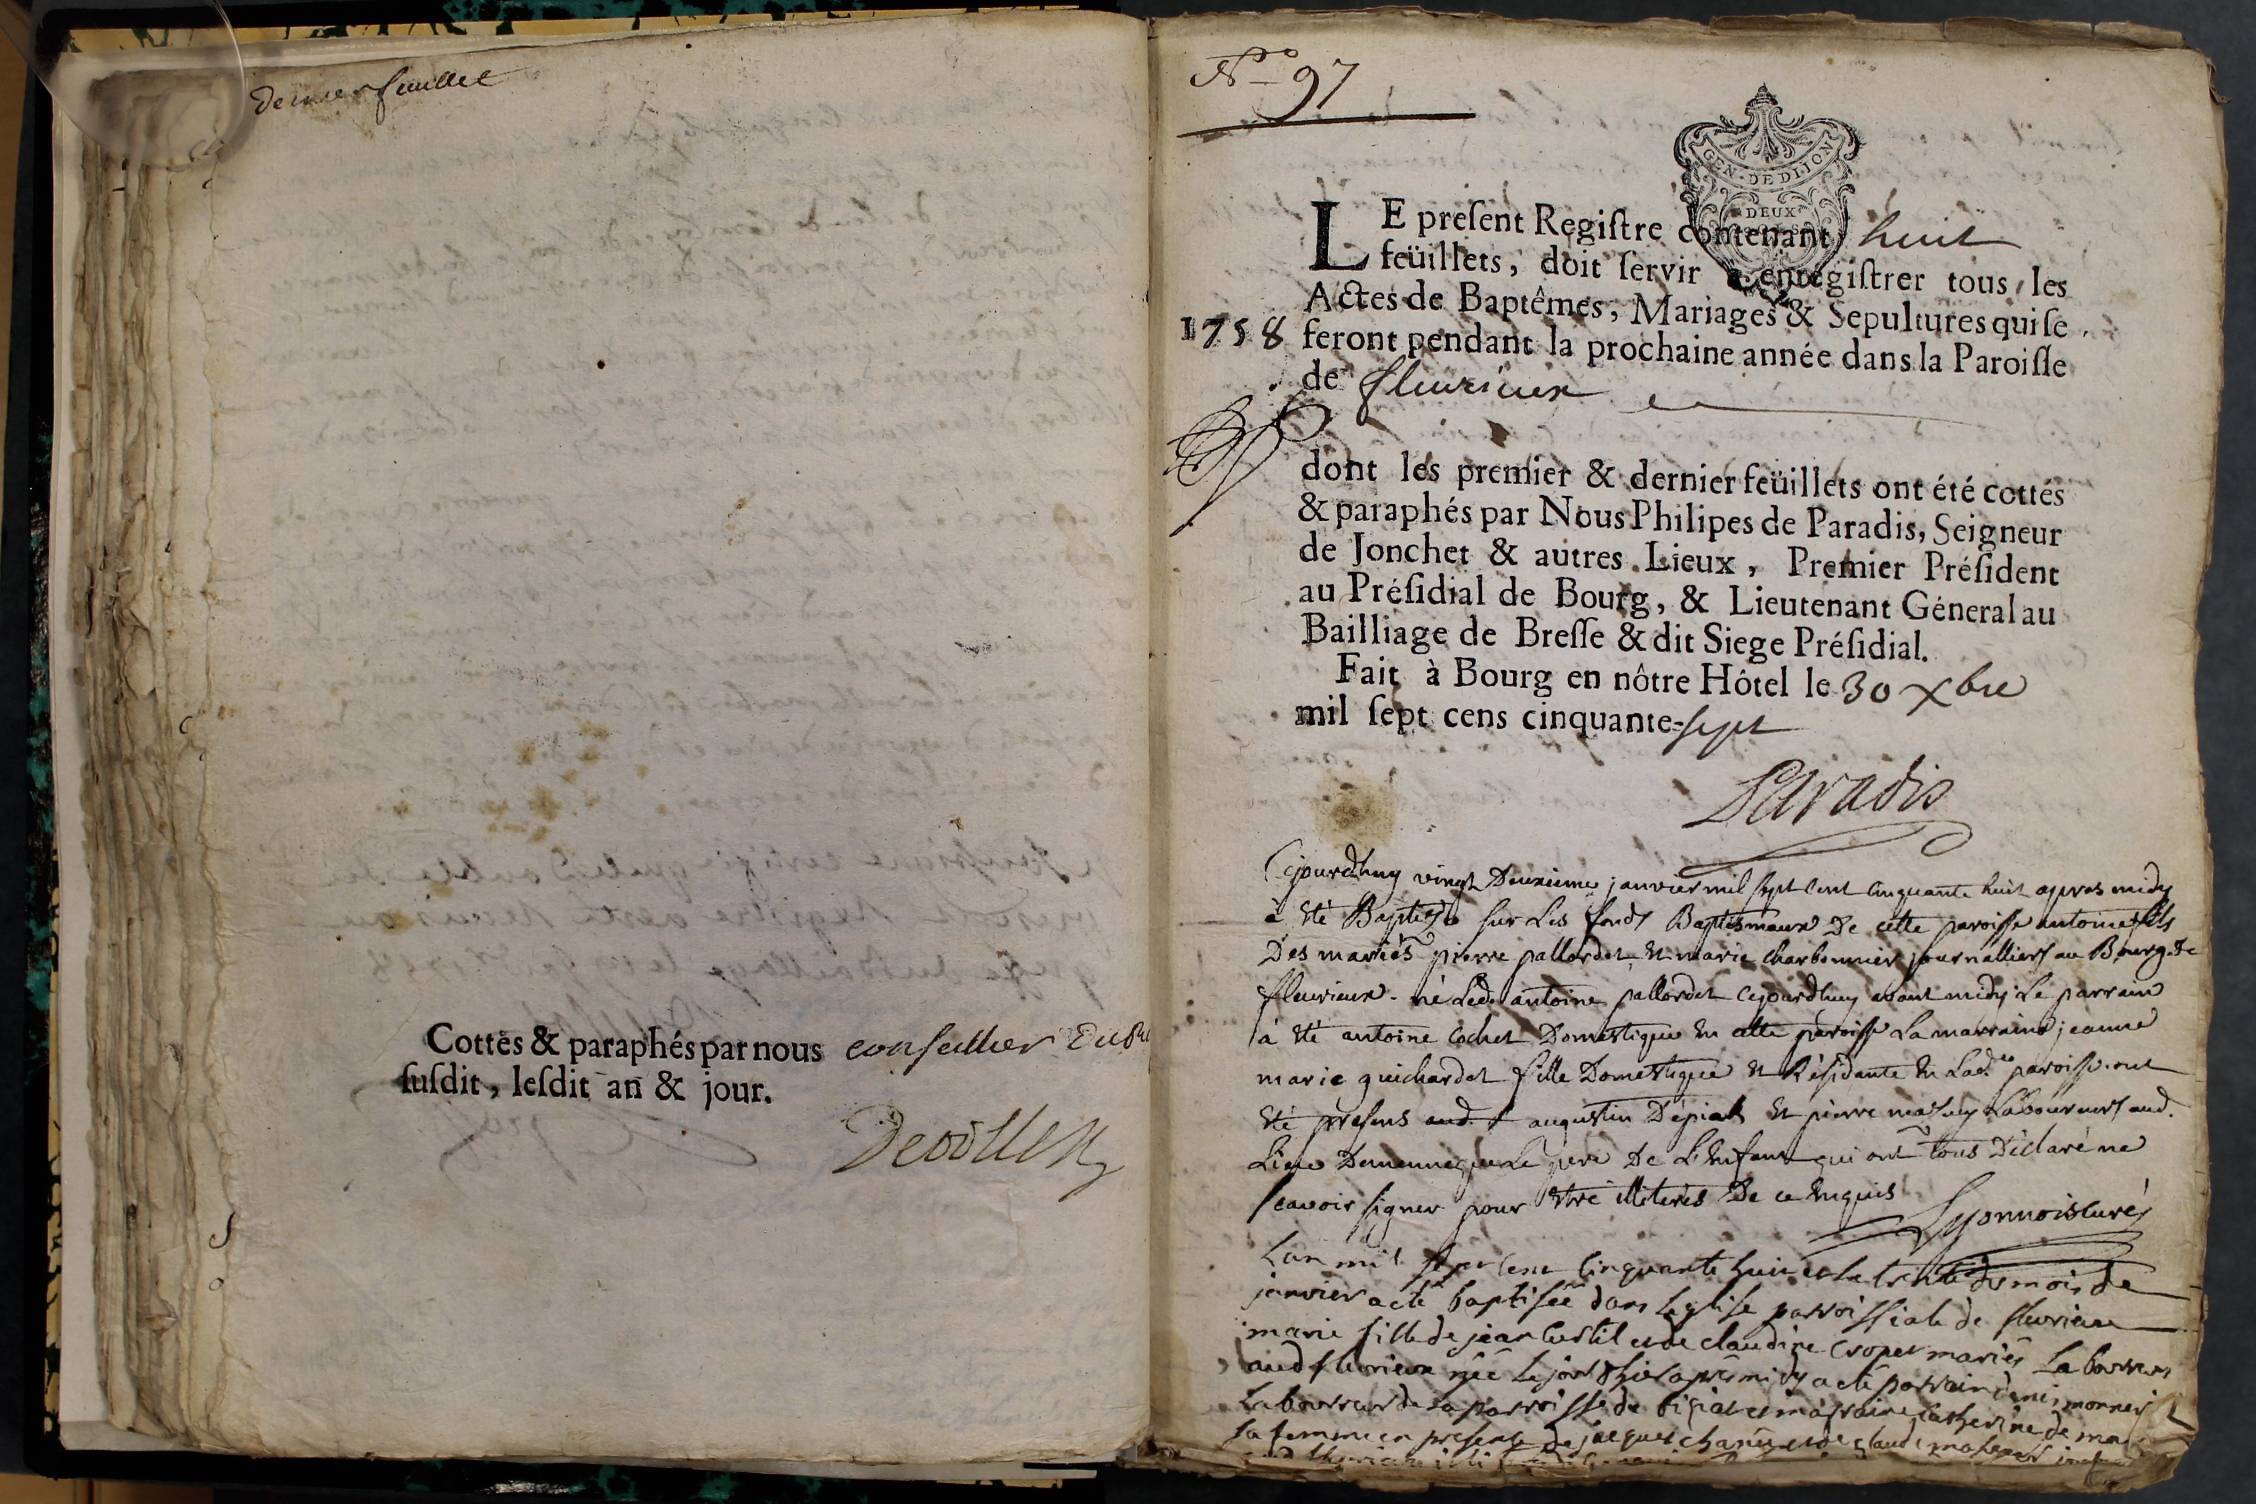 Dernier feuillet
Cottés & paraphés par nous conseiller
susdit, lesdit an & jour.
N.° 97
GEN. DE DIJON
DEUX
LE present Registre contenant huit
feüillets, doit servir a enregistrer tous les
Actes de Baptêmes, Mariages & Sepultures qui se
1758 feront pendant la prochaine année dans la Paroisse
de fleurieux
dont les premier & dernier feüillets ont été cottés
& paraphés par Nous Philipes de Paradis, Seigneur
de Jonchet & autres Lieux, Premier Président
au Présidial de Bourg, & Lieutenant Géneral au
Bailliage de Bresse & dit Siege Présidial.
Fait à Bourg en nôtre Hôtel le 30 Xbre
mil sept cens cinquante-sept
Paradis
Cejourdhuy vingt Deuxieme janvier mil sept cent cinquante huit apres midy
a été Baptisé sur Les fonds Baptismaux De cette paroisse antoine fils
Des mariés pierre pallordet et marie charbonnier journalliers au Bourg de
fleurieux. né Led. antoine pallordet cejourdhuy avant midy Le parrain
à été antoine cochet Domestique en cette paroisse La marraine jeanne
marie guichardet fille Domestique et Résidante en Lad. paroisse. ont
été presens aud. augustin et pierre Laboureurs aud.
Lieu Dememe que Le pere De L'enfant qui ont tous Déclaré ne
scavoir signer pour etre illiterés De ce enquis
Lyonnois curé
Lan mil sept cent cinquante huit et le trente du mois de
janvier a eté baptisée dans leglise parroissiale de fleurieux
marie fille de jean Curtil et de claudine mariés Laboureurs
aud fleurieux née le jour dhier apres midy a eté parrain denis monnier
Laboureur de la parroisse de et marraine catherine de
sa femme en presence de jacques et de claude